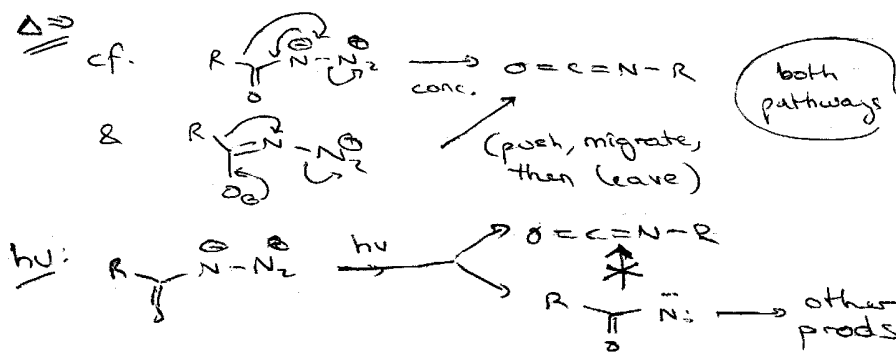 Δ ⇒
cf. R O N⊖ - N₂⊕ → conc. O=C=N-R
both pathways
& R O⊖ N - N₂⊕
(push, migrate, then leave)
hν: R O N⊖ - N₂⊕ hν → O=C=N-R
R O N: → other prods